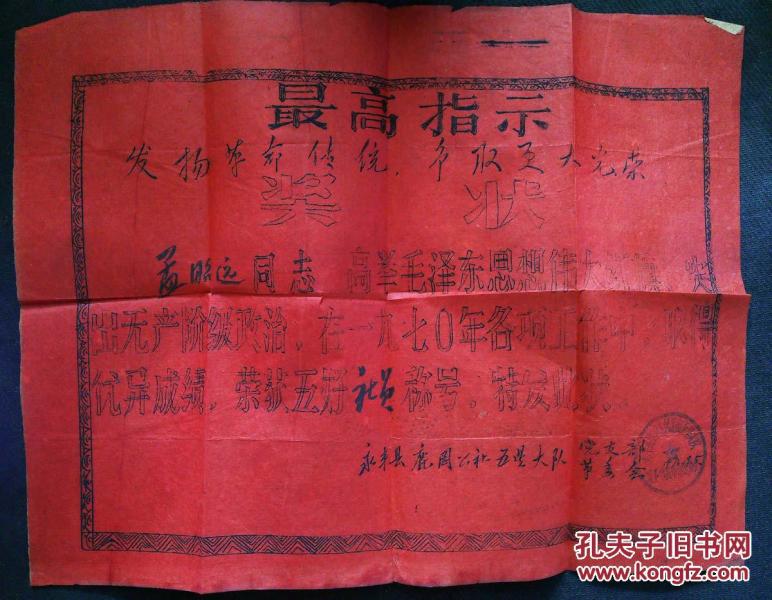 最高指示
发扬革命传统，争取更大光荣
奖状
孟昭远同志 高举毛泽东思想伟大红旗，突
出无产阶级政治，在一九七0年各项工作中，取得
优异成绩，荣获五好社员称号，特发此状。
永丰县鹿冈公社五岗大队 党支部
革委会
孔夫子旧书网
www.kongfz.com